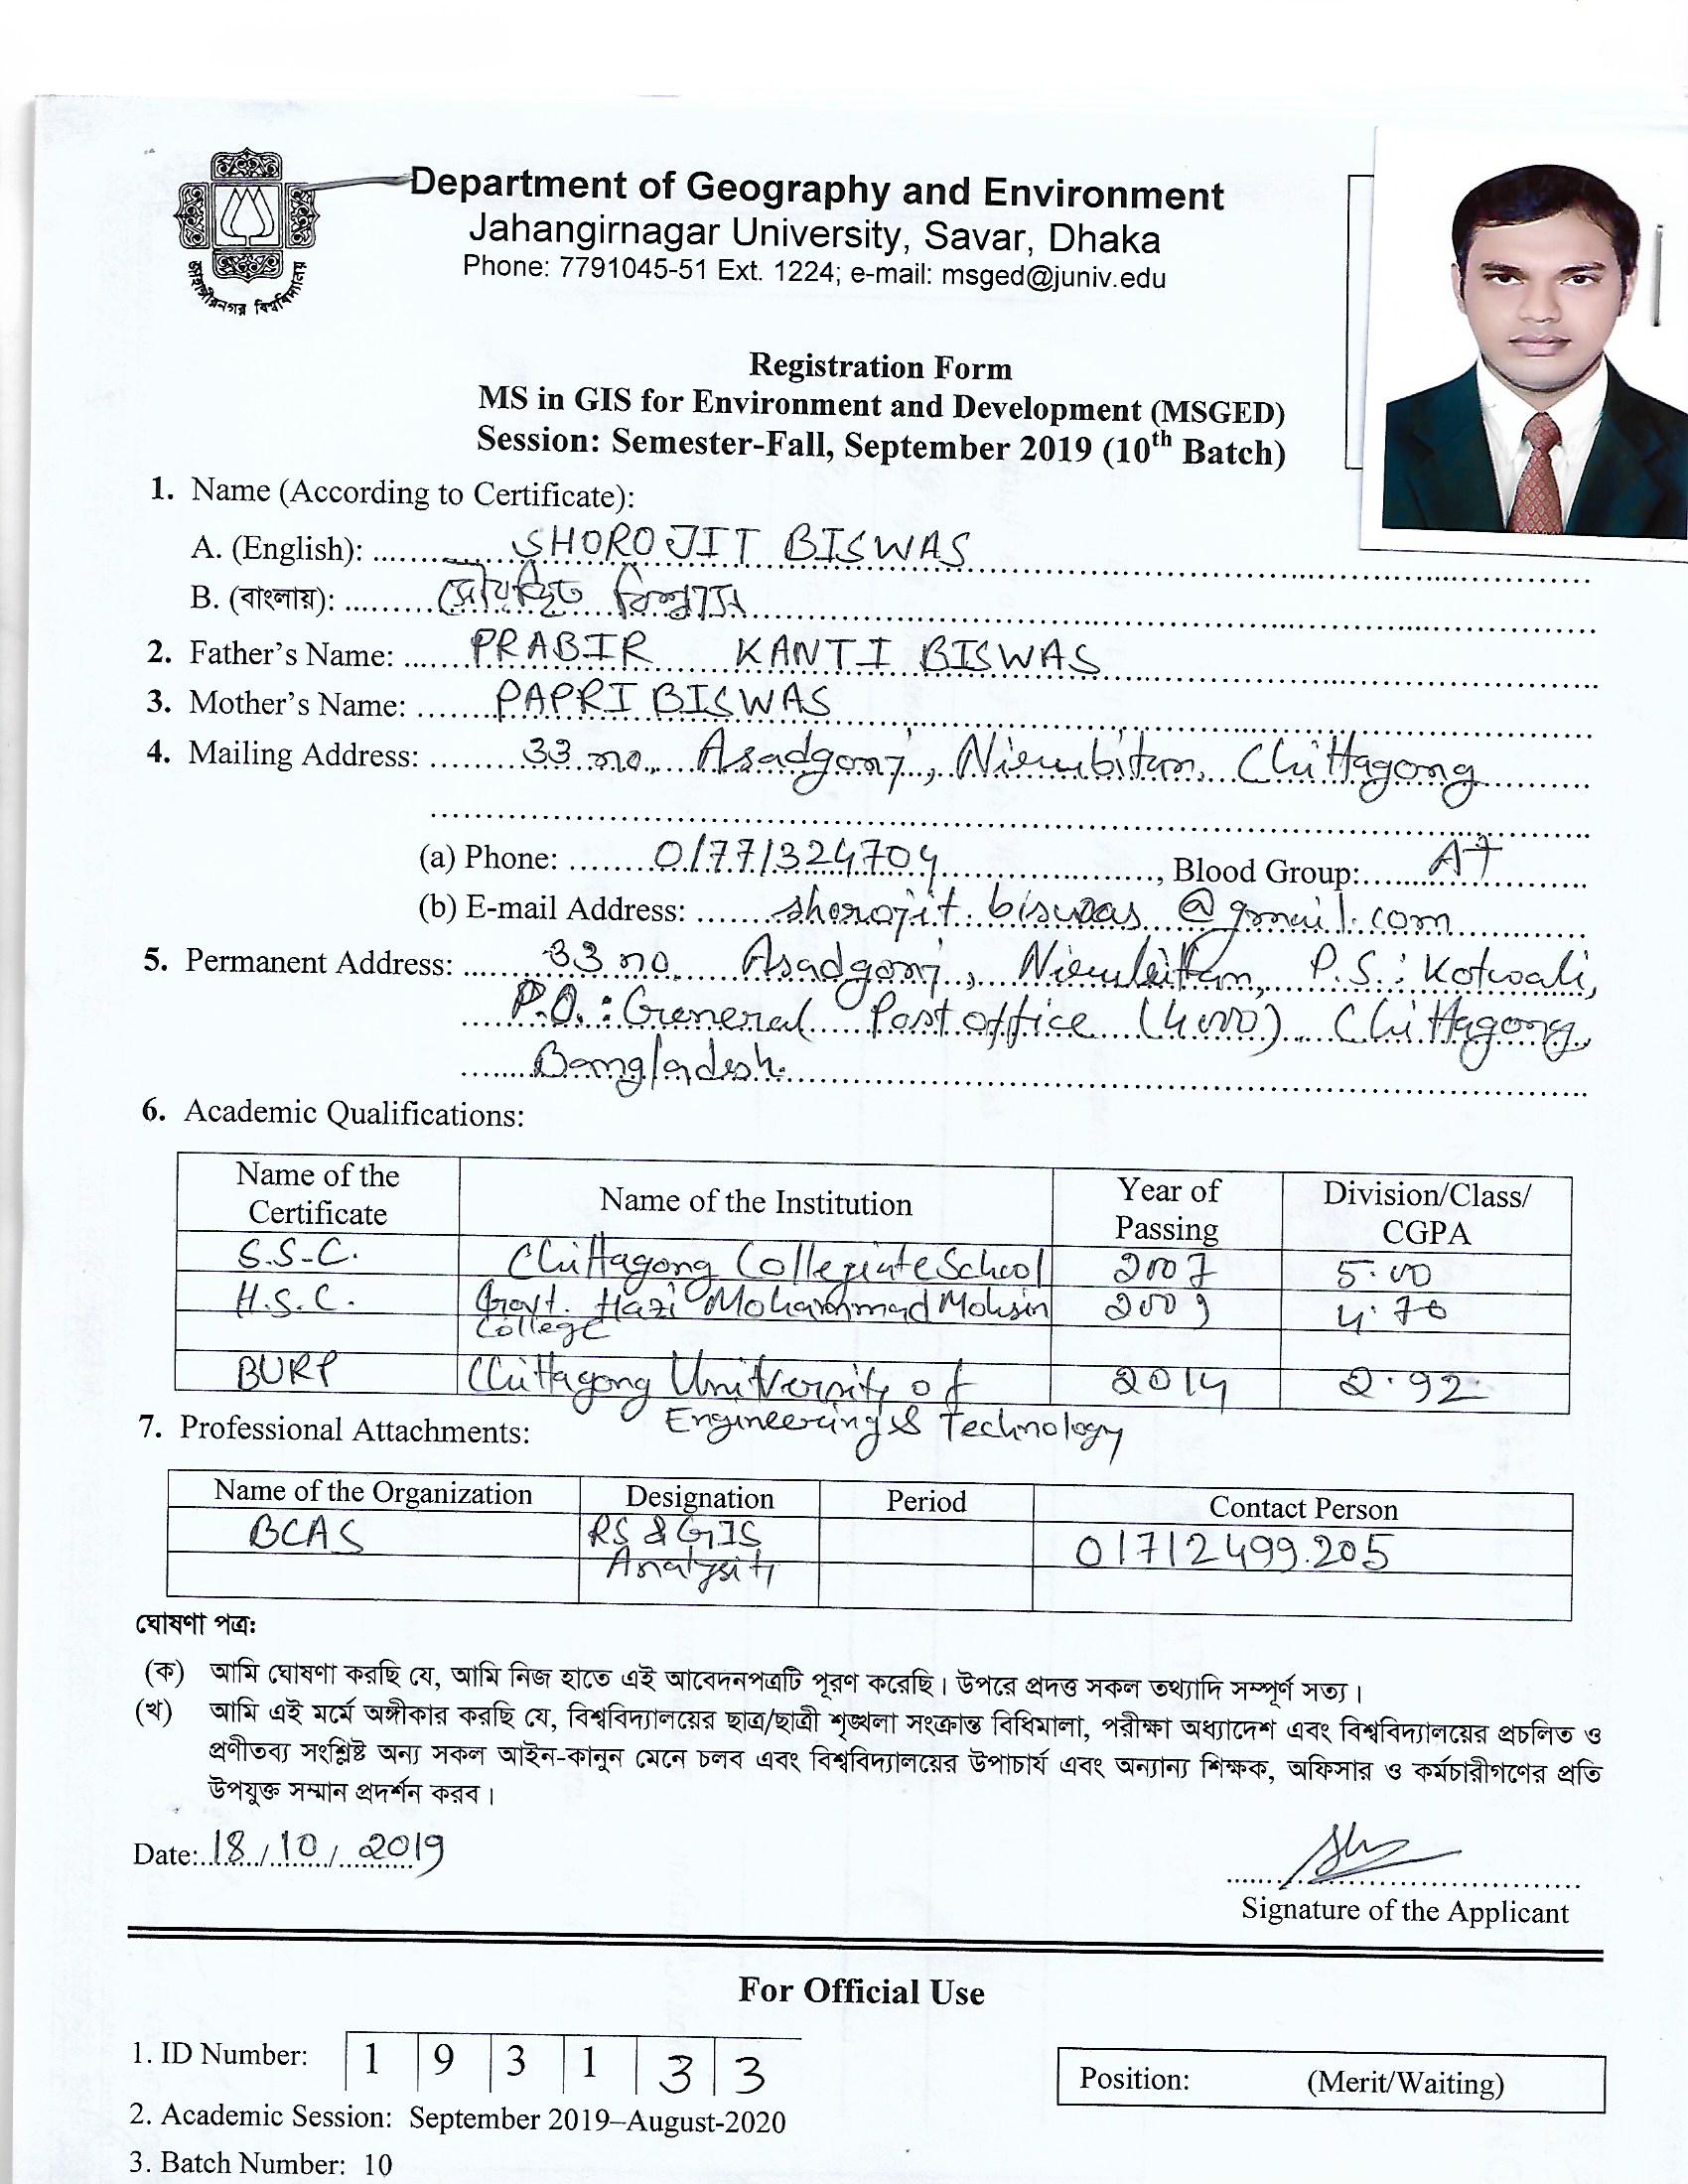 Department of Geography and Environment
Jahangirnagar University, Savar, Dhaka
Phone: 7791045-51 Ext. 1224; e-mail: msged@juniv.edu
জাহাঙ্গীরনগর বিশ্ববিদ্যালয়
Registration Form
MS in GIS for Environment and Development (MSGED)
Session: Semester-Fall, September 2019 (10th Batch)
1. Name (According to Certificate):
A. (English): SHOROJIT BISWAS
B. (বাংলায়): বিশ্বাস
2. Father's Name: PRABIR KANTI BISWAS
3. Mother's Name: PAPRI BISWAS
4. Mailing Address: 33 no, Asadgonj, Chittagong
(a) Phone: 01771324704, Blood Group: A+
(b) E-mail Address: shorojit.biswas@gmail.com
5. Permanent Address: 33 no Asadgonj, P.S.: Kotwali,
P.O.: General Post office (4000) Chittagong,
Bangladesh.
6. Academic Qualifications:
Name of the Certificate Name of the Institution Year of Passing Division/Class/ CGPA
S.S.C. Chittagong Collegiate School 2007 5.00
H.S.C. Govt. Hazi Mohammad Mohsin 2009 4.70
College
BURP Chittagong University of 2014 2.92
Engineering & Technology
7. Professional Attachments:
Name of the Organization Designation Period Contact Person
BCAS RS & GIS 01712499205
ঘোষণা পত্র:
(ক) আমি ঘোষণা করছি যে, আমি নিজ হাতে এই আবেদনপত্রটি পূরণ করেছি। উপরে প্রদত্ত সকল তথ্যাদি সম্পূর্ণ সত্য।
(খ) আমি এই মর্মে অঙ্গীকার করছি যে, বিশ্ববিদ্যালয়ের ছাত্র/ছাত্রী শৃঙ্খলা সংক্রান্ত বিধিমালা, পরীক্ষা অধ্যাদেশ এবং বিশ্ববিদ্যালয়ের প্রচলিত ও
প্রণীতব্য সংশ্লিষ্ট অন্য সকল আইন-কানুন মেনে চলব এবং বিশ্ববিদ্যালয়ের উপাচার্য এবং অন্যান্য শিক্ষক, অফিসার ও কর্মচারীগণের প্রতি
উপযুক্ত সম্মান প্রদর্শন করব।
Date: 18/10/2019
Signature of the Applicant
For Official Use
1. ID Number: 1 9 3 1 3 3
Position: (Merit/Waiting)
2. Academic Session: September 2019–August-2020
3. Batch Number: 10